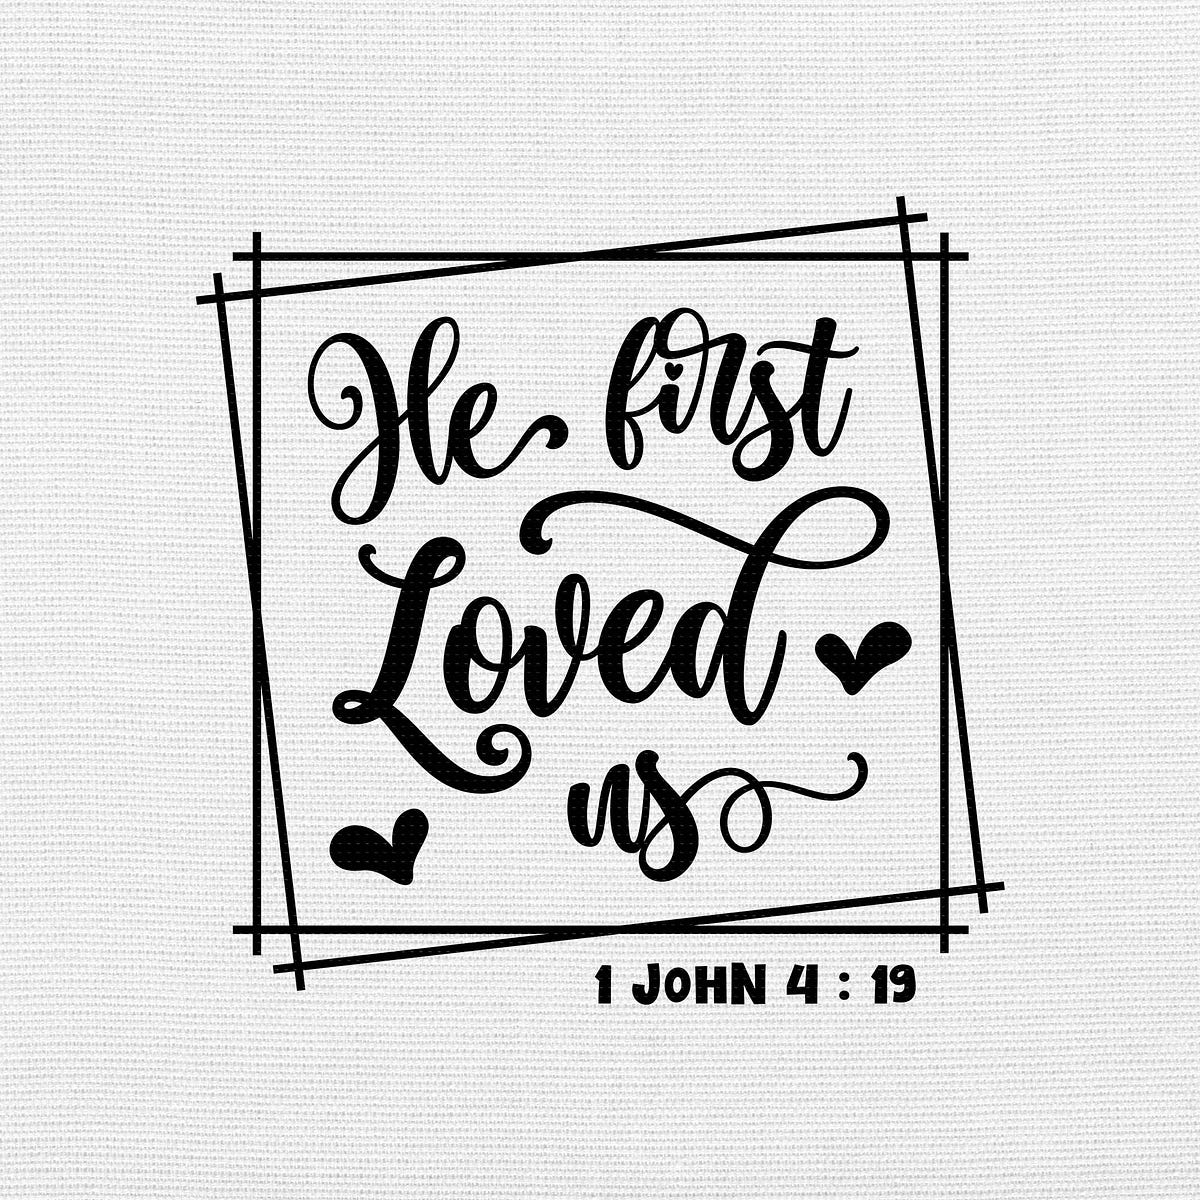 He first
Loved
us
1 JOHN 4 : 19